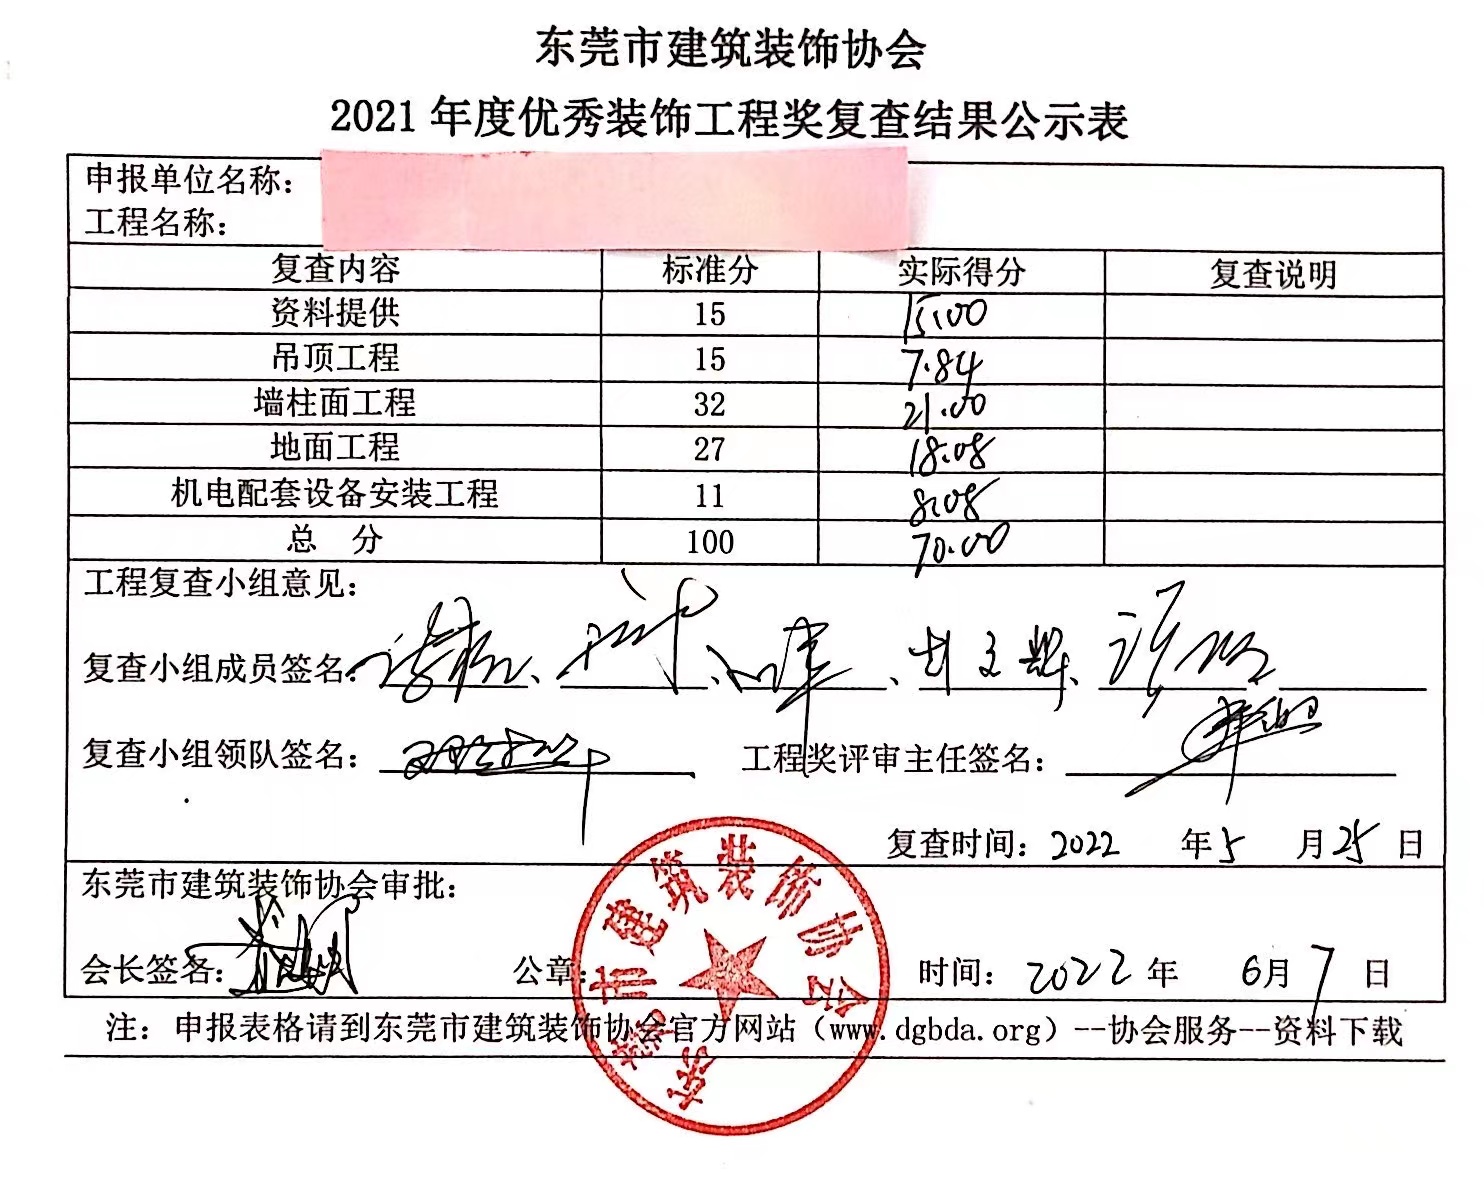 东莞市建筑装饰协会
2021年度优秀装饰工程奖复查结果公示表
申报单位名称：
工程名称：
复查内容 标准分 实际得分 复查说明
资料提供 15 15.00
吊顶工程 15 7.84
墙柱面工程 32 21.00
地面工程 27 18.08
机电配套设备安装工程 11 8.08
总 分 100 70.00
工程复查小组意见：
复查小组成员签名：
复查小组领队签名： 工程奖评审主任签名：
复查时间：2022 年5 月25日
东莞市建筑装饰协会审批：
会长签名： 公章： 时间：2022年 6月7日
东莞市建筑装饰协会
注：申报表格请到东莞市建筑装饰协会官方网站（www.dgbda.org）--协会服务--资料下载